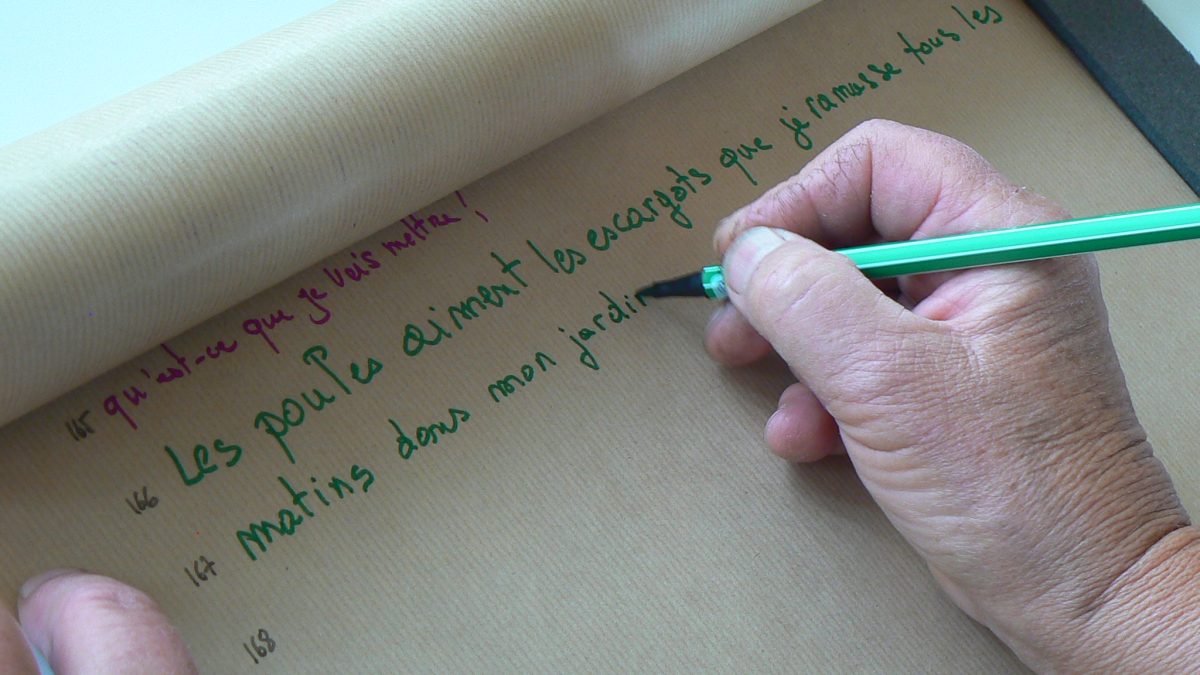 165 qu'est-ce que je vais mettre!
166 Les poules aiment les escargots que je ramasse tous les
167 matins dans mon jardin
168